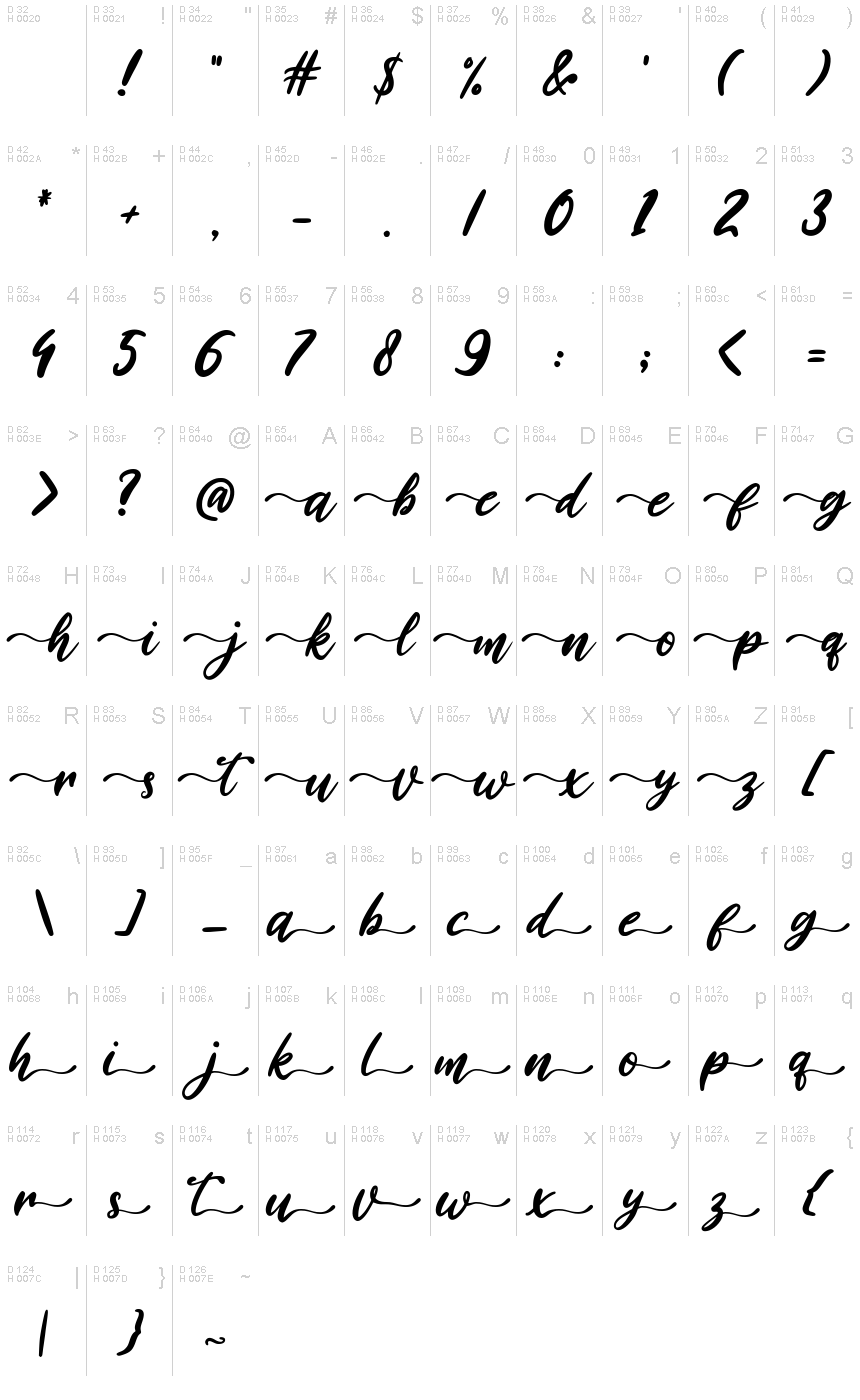 D 32 D 33 ! D 34 " D 35 # D 36 $ D 37 % D 38 & D 39 ' D 40 ( D 41 )
H 0020 H 0021 H 0022 H 0023 H 0024 H 0025 H 0026 H 0027 H 0028 H 0029
! " # $ % & ' ( )
D 42 * D 43 + D 44 , D 45 - D 46 . D 47 / D 48 0 D 49 1 D 50 2 D 51 3
H 002A H 002B H 002C H 002D H 002E H 002F H 0030 H 0031 H 0032 H 0033
* + , - . / 0 1 2 3
D 52 4 D 53 5 D 54 6 D 55 7 D 56 8 D 57 9 D 58 : D 59 ; D 60 < D 61 =
H 0034 H 0035 H 0036 H 0037 H 0038 H 0039 H 003A H 003B H 003C H 003D
4 5 6 7 8 9 : ; < =
D 62 > D 63 ? D 64 @ D 65 A D 66 B D 67 C D 68 D D 69 E D 70 F D 71 G
H 003E H 003F H 0040 H 0041 H 0042 H 0043 H 0044 H 0045 H 0046 H 0047
> ? @ a b c d e f g
D 72 H D 73 I D 74 J D 75 K D 76 L D 77 M D 78 N D 79 O D 80 P D 81 Q
H 0048 H 0049 H 004A H 004B H 004C H 004D H 004E H 004F H 0050 H 0051
h i j k l m n o p q
D 82 R D 83 S D 84 T D 85 U D 86 V D 87 W D 88 X D 89 Y D 90 Z D 91 [
H 0052 H 0053 H 0054 H 0055 H 0056 H 0057 H 0058 H 0059 H 005A H 005B
r s t u v w x y z [
D 92 \ D 93 ] D 95 _ D 97 a D 98 b D 99 c D 100 d D 101 e D 102 f D 103 g
H 005C H 005D H 005F H 0061 H 0062 H 0063 H 0064 H 0065 H 0066 H 0067
\ ] _ a b c d e f g
D 104 h D 105 i D 106 j D 107 k D 108 l D 109 m D 110 n D 111 o D 112 p D 113 q
H 0068 H 0069 H 006A H 006B H 006C H 006D H 006E H 006F H 0070 H 0071
h i j k l m n o p q
D 114 r D 115 s D 116 t D 117 u D 118 v D 119 w D 120 x D 121 y D 122 z D 123 {
H 0072 H 0073 H 0074 H 0075 H 0076 H 0077 H 0078 H 0079 H 007A H 007B
r s t u v w x y z {
D 124 | D 125 } D 126 ~
H 007C H 007D H 007E
| } ~